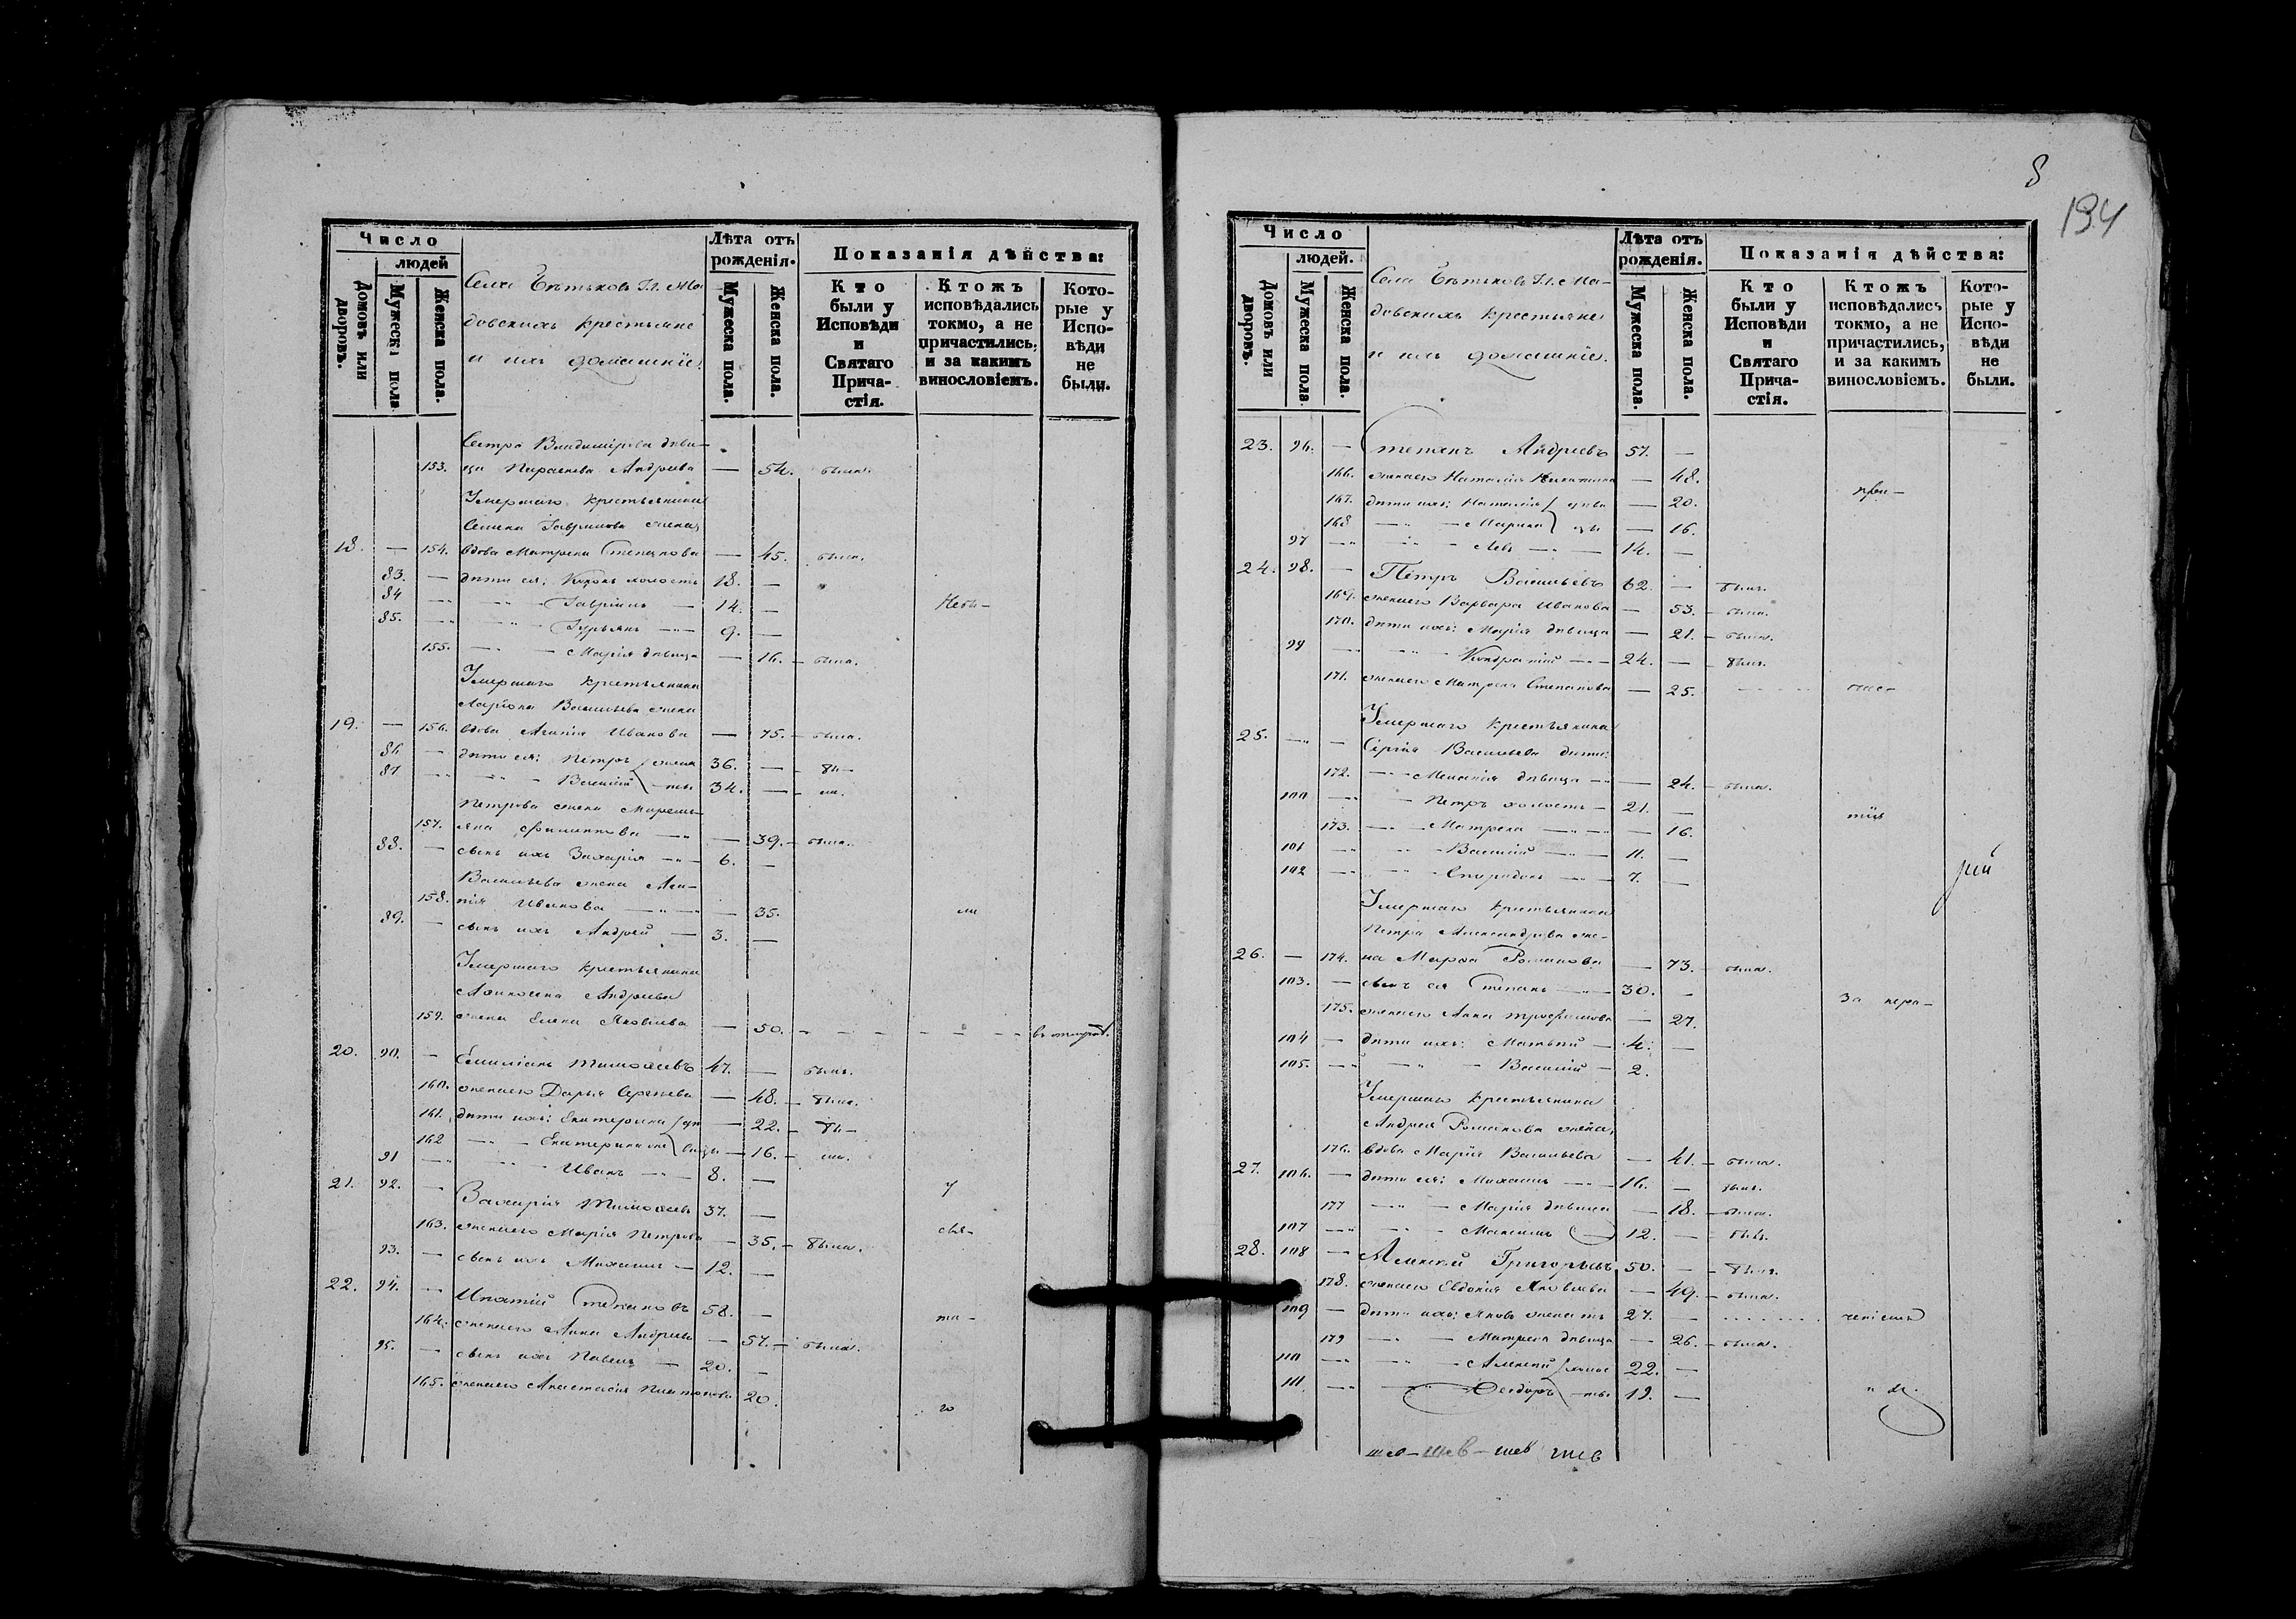 Число
людей
Домовъ или дворовъ.
Мужеска пола
Женска пола.
крестьяне
и ихъ домашніе.
Лѣта отъ рожденія.
Мужеска пола.
Женска пола.
Показанія дѣйства:
Кто были у Исповѣди и Святаго Прича-стія.
Ктожъ исповѣдались токмо, а не причастились, и за какимъ винословіемъ.
Кото-рые у Испо-вѣди не были.
Сестра Владимірова дѣви-
153. ца Параскева Андреева — 54. была.
Умершаго крестьянина
Семена Гаврилова жена,
18. — 154. вдова Матрена Степанова — 45. была.
83. — дѣти ея: холостъ 18. —
84 — Гавріилъ — 14. —
85. — Гурьянъ — 9. —
155. — Марія дѣвица — 16. — была.
Умершаго крестьянина
Ларіона Васильева жена
19. — 156. вдова Иванова — 75. — была.
86 — дѣти ея: Петръ жена 36. — бы-
87 — Василій -ты 34. — ли.
Петрова жена
157. — 39. — была.
88. — сынъ ихъ Захарія — 6. —
Васильева жена
158. Иванова — 35. ли
89. — сынъ ихъ Андрей — 3. —
Умершаго крестьянина
Андреева
159. жена Елена Яковлева — 50.
20. 90. — Емиліанъ Тимоѳеевъ 47. — былъ.
160. жена его Дарья Сергѣева — 48. — была.
161. дѣти ихъ: Екатерина дѣ — 22. — бы-
162 — Екатерина вицы — 16. — ли.
91 — Иванъ — 8. —
21. 92. — Захарія Тимоѳеевъ 37. — у
163. жена его Марія Петрова — 35. — была. свя-
93. — сынъ ихъ Михаилъ — 12. —
22. 94. — Ипатій Степановъ 58. — та-
164. жена его Анна Андреева — 57. — была.
95. — сынъ ихъ Павелъ — 20. —
165. жена его Анастасія Платонова 20. го
8
194
Число
людей.
Домовъ или дворовъ.
Мужеска пола
Женска пола.
крестьяне
и ихъ домашніе.
Лѣта отъ рожденія.
Мужеска пола.
Женска пола.
Показанія дѣйства:
Кто были у Исповѣди и Святаго Прича-стія.
Ктожъ исповѣдались токмо, а не причастились, и за какимъ винословіемъ.
Кото-рые у Испо-вѣди не были.
23. 96. — Степанъ Андреевъ 57. —
166. жена его Наталія Никитина — 48. при-
167. дѣти ихъ: Наталія дѣви — 20.
168 — Марина цы — 16.
97 — Левъ — 14. —
24. 98. — Петръ Васильевъ 62. — былъ.
169. жена его Варвара Иванова — 53. — была.
170. дѣти ихъ: Марія дѣвица — 21. — была.
99 — Кондратій — 24. — былъ.
171. жена его Матрена Степанова — 25.
Умершаго крестьянина
25. — Сергія Васильева дѣти:
172. — Меланія дѣвица — 24. — была.
100 — Петръ холостъ — 21. — тія
173. — Матрена — 16.
101 — Василій — 11. —
102 — Спиридонъ — 7. —
Умершаго крестьянина
Петра Александрова же-
26. — 174. на Марѳа Романова — 73. — была.
103. — сынъ ея Степанъ — 30. — за нера-
175. жена его Анна Трофимова — 27.
104 — дѣти ихъ: Матвѣй — 4. —
105. — Василій — 2.
Умершаго крестьянина
Андрея Романова жена,
176. вдова Марія Васильева — 41. — была.
27. 106. — дѣти ея: Михаилъ — 16. — былъ.
177 — Марія дѣвица — 18. — была.
107 — Максимъ 12. — былъ.
28. 108 — Алексѣй Григорьевъ 50. — былъ.
178. жена его Евдокія Яковлева — 49. — была.
109 — дѣти ихъ: Яковъ женатъ 27. —
179 — Матрена дѣвица — 26. — была.
110 — Алексѣй холос 22. —
111. — Ѳеодоръ -ты 19. —